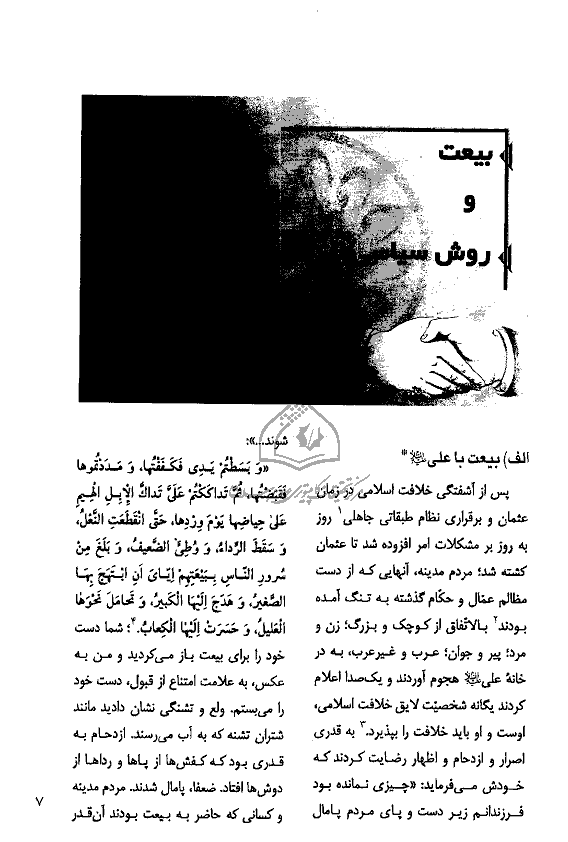 بیعت
و
روش سیاسی
الف) بیعت با علی*
پس از آشفتگی خلافت اسلامی در زمان
عثمان و برقراری نظام طبقاتی جاهلی۱ روز
به روز بر مشکلات امر افزوده شد تا عثمان
کشته شد؛ مردم مدینه، آنهایی که از دست
مظالم عمّال و حکّام گذشته به تنگ آمده
بودند۲ بالاتفاق از کوچک و بزرگ؛ زن و
مرد؛ پیر و جوان؛ عرب و غیرعرب، به در
خانهٔ علی هجوم آوردند و یک‌صدا اعلام
کردند یگانه شخصیّت لایق خلافت اسلامی،
اوست و او باید خلافت را بپذیرد.۳ به قدری
اصرار و ازدحام و اظهار رضایت کردند که
خودش می‌فرماید: «چیزی نمانده بود
فرزندانم زیر دست و پای مردم پامال
شوند...»:
«وَ بَسَطْتُمْ یَدِی فَکَفَفْتُها، وَ مَدَدْتُمُوها
فَقَبَضْتُها، ثُمَّ تَداکَکْتُمْ عَلَیَّ تَداكَّ الْإِبِلِ الْهِیمِ
عَلیٰ حِیاضِها یَوْمَ وِرْدِها، حَتَّی انْقَطَعَتِ النَّعْلُ،
وَ سَقَطَ الرِّداءُ، وَ وُطِیَٔ الضَّعیفُ، وَ بَلَغَ مِنْ
سُرورِ النّاسِ بِبَیْعَتِهِمْ إِیّایَ اَنِ ابْتَهَجَ بِهَا
الصَّغیرُ، وَ هَدَجَ اِلَیْهَا الْکَبیرُ، وَ تَحامَلَ نَحْوَهَا
الْعَلیلُ، وَ حَسَرَتْ اِلَیْهَا الْکِعابُ.۴؛ شما دست
خود را برای بیعت باز می‌کردید و من به
عکس، به علامت امتناع از قبول، دست خود
را می‌بستم. ولع و تشنگی نشان دادید مانند
شتران تشنه که به آب می‌رسند. ازدحام به
قدری بود که کفش‌ها از پاها و رداها از
دوش‌ها افتاد. ضعفا، پامال شدند. مردم مدینه
و کسانی که حاضر به بیعت بودند آن‌قدر
۷